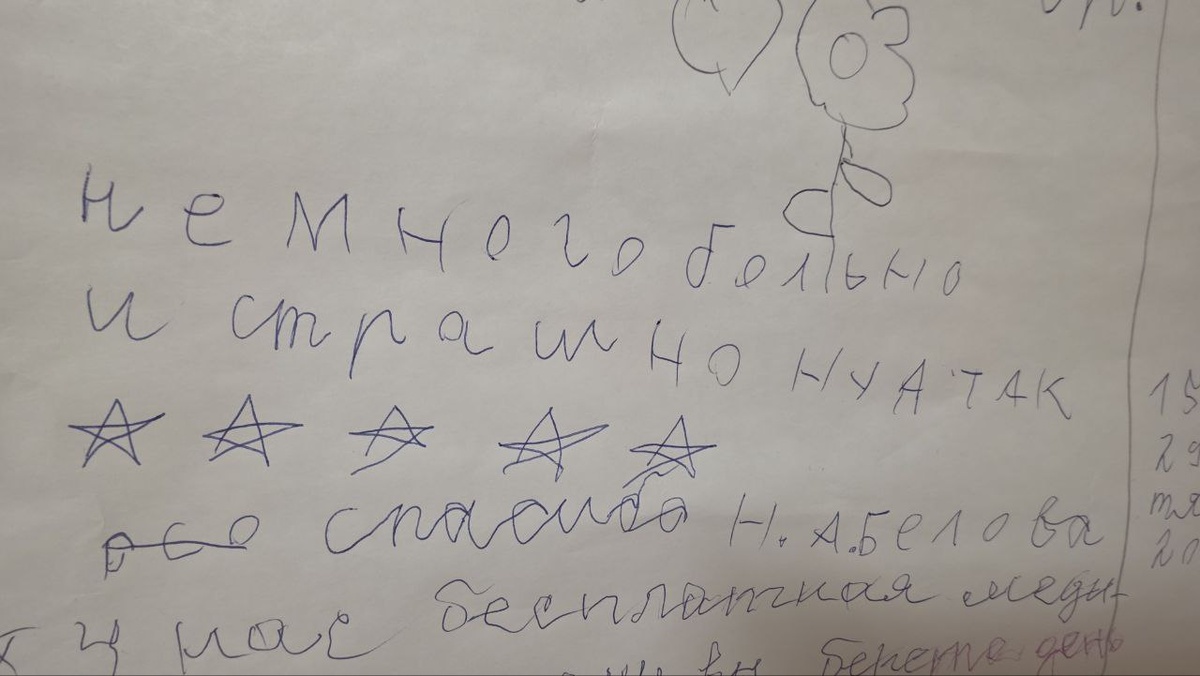 немного больно
и страшно НУ А ТАК
спасибо Н.А.Белова
у нас бесплатная меди-
берете день
15